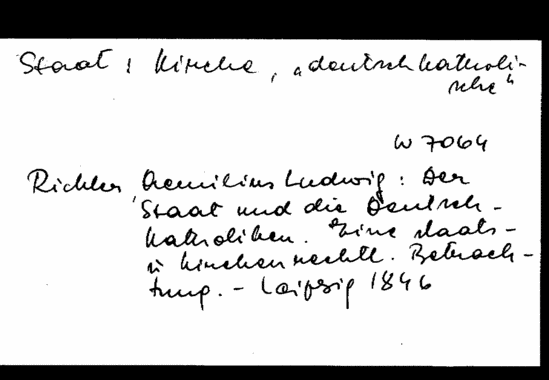 Staat : Kirche, „deutschkatholi-
sche"
W 7064
Richter, Aemilius Ludwig: Der
Staat und die Deutsch-
katholiken. Eine staats-
u kirchenrechtl. Betrach-
tung. - Leipzig 1846